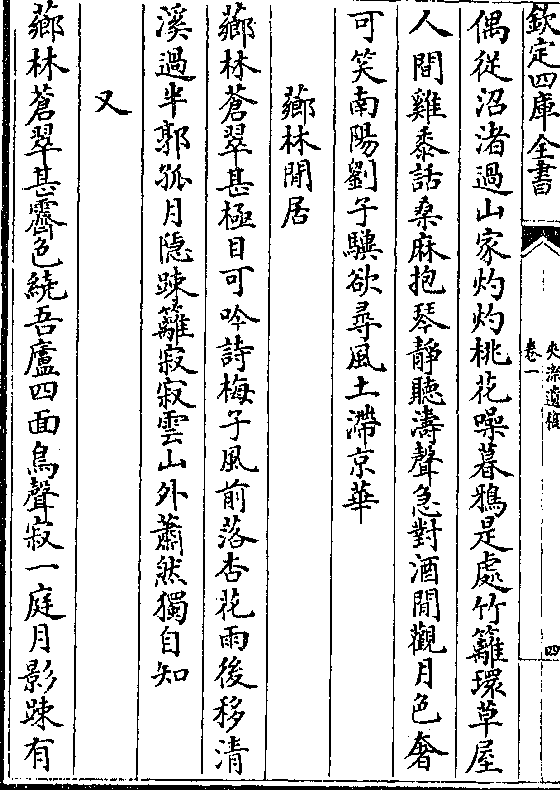 欽定四庫全書
夾漈遺稿
卷一
四
偶從沼渚過山家灼灼桃花噪暮鴉是處竹籬環草屋
人間雞黍話桑麻抱琴靜聽濤聲急對酒閒觀月色奢
可笑南陽劉子驥欲尋風土滯京華
薌林閒居
薌林蒼翠甚極目可吟詩梅子風前落杏花雨後移清
溪過半郭孤月隐踈籬寂寂雲山外蕭然獨自知
又
薌林蒼翠甚霽色繞吾廬四面鳥聲寂一庭月影踈有